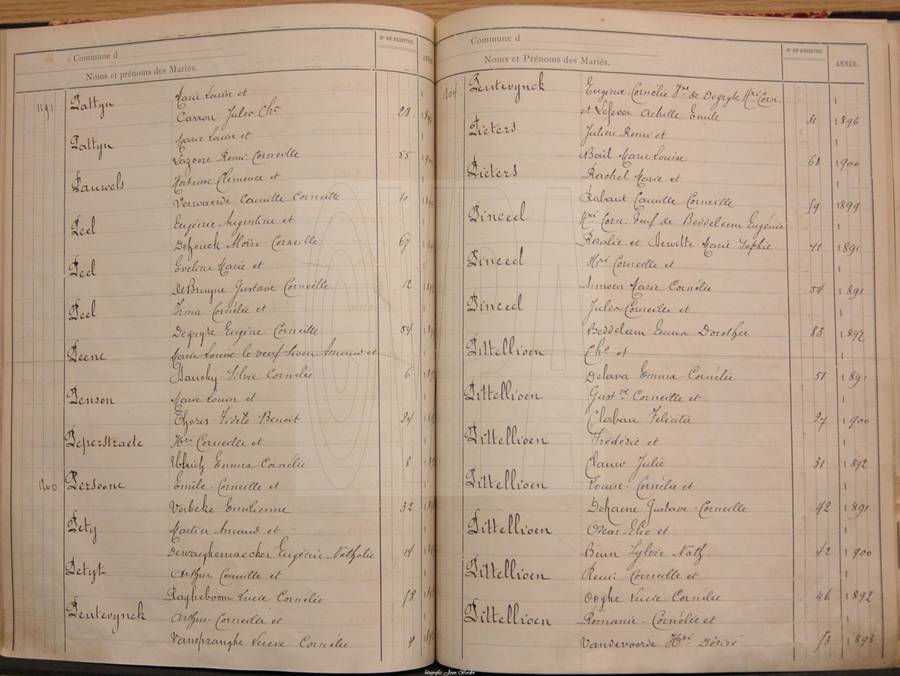 Commune d
Noms et prénoms des Mariés.
N° DU REGISTRE
1191
Pattyn Marie Louise et
Carron Jules Ch. 28
Pattyn Marie Louise et
Remi Corneille 55
Pauwels Clémence et
Camille Corneille 10
Peel Eugénie Augustine et
Aloïse Corneille 67
Peel Eveline Marie et
DeBruyne Gustave Corneille 12
Peel Irma Cornélie et
Degryse Eugène Corneille 54
Peene Marie Louise Amand et
Silvie Cornélie 6
Penson Marie Louise et
Fidèle Benoit 24
Peperstraete Hri Corneille et
Emma Cornélie 8
1200 Persoone Emile Corneille et
Verbeke Emilienne 32
Pety Martin Amand et
Dewaeghemaecker Eugénie Nathalie 14
Petyt Arthur Camille et
Ragheboom Lucie Cornélie 53
Peutevynck Arthur Corneille et
Lucie Cornélie 4
Commune d
Noms et Prénoms des Mariés.
N° DU REGISTRE. ANNÉE.
1204 Peutevynck Eugénie Cornélie Vve de Degryse Hri Corn.
et Lefever Achille Emile 31 1896
Pieters Julien Remi et
Bail Marie Louise 68 1900
Pieters Rachel Marie et
Rabaut Camille Corneille 59 1899
Pinceel Hri Corn. veuf de Beddeleem Eugénie
Rosalie et Dewitte Marie Sophie 41 1891
Pinceel Hri Corneille et
Simoen Marie Cornélie 54 1891
Pinceel Jules Corneille et
Emma Dorothée 83 1892
Pittellioen Chs et
Delava Emma Cornélie 51 1891
Pittellioen Gustve Corneille et
Clabau Félicitée 27 1900
Pittellioen Frédéric et
Clauw Julie 31 1892
Pittellioen Louise Cornélie et
Dehaene Gustave Corneille 42 1891
Pittellioen Oscar Elie et
Beun Sylvie Nath. 42 1900
Pittellioen Remi Corneille et
Ooghe Lucie Cornélie 46 1892
Pittellioen Romanie Cornélie et
Vandevoorde Hri Désiré 53 1893